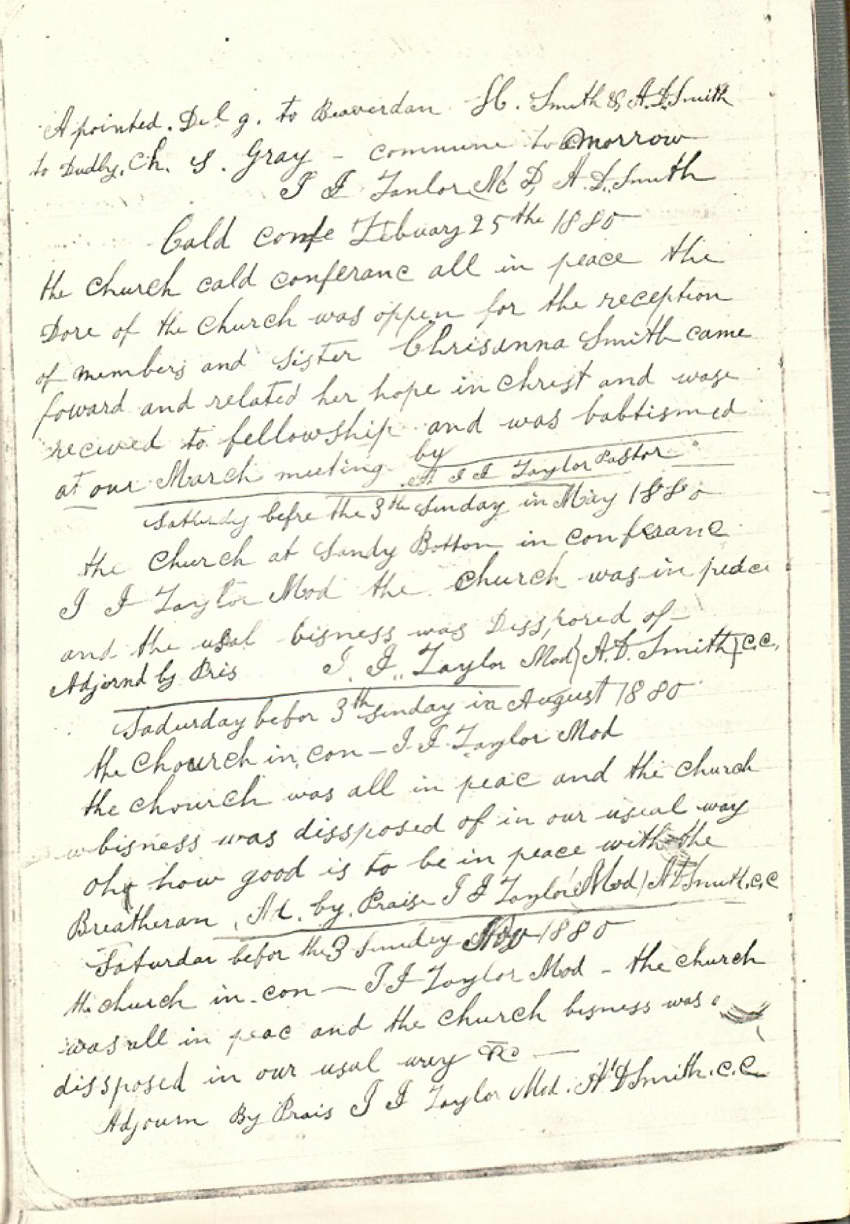 Apointed. Delg. to Beaverdan H. Smith & A.D. Smith
to Dudly. Ch. S. Gray - commune to omorrow
J I Tanlor Mc D, A. D. Smith
Cald confe Febuary 25 the 1880
the church cald conferanc all in peace the
Dore of the church was oppin for the reception
of members and sister Chrisanna Smith came
foward and related her hope in Christ and wase
recived to fellowship and was babtismed
at our March meeting by
J I Taylor Pastor
Saturdy befre the 3th Sunday in May 1880
the Church at Sandy Botton in conferanc
J I Taylor Mod the church was in peace
and the usal bisness was Dissposed of -
Adjornd by Pris J. I. Taylor Mod) A. D. Smith) C.C.
Saturday befor 3th Sunday in August 1880
the Chourch in con - J I Taylor Mod
the chourch was all in peac and the church
bisness was dissposed of in our usual way
Oh how good is to be in peace with the
Breatheran. Ad. by Praise J I Taylor Mod) A D Smith. C.C
Saturdar befor the 3 Sundey Nov 1880
the church in con - J I Taylor Mod - the church
was all in peac and the church bisness was
dissposed in our usual wey &c -
Adjourn By Prais J I Taylor Mod. A D Smith. C.C.